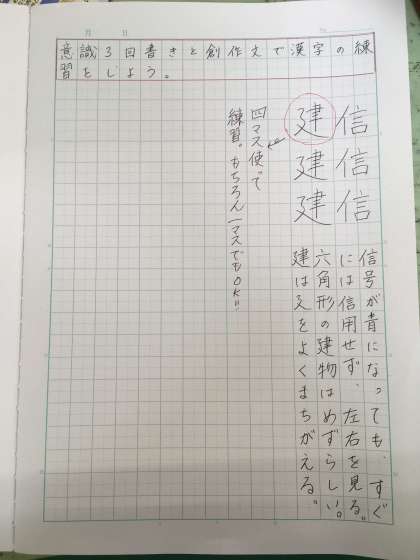 月 日
意識3回書きと創作文で漢字の練
習をしよう。
信信信
信号が青になっても、すぐ
には信用せず、左右を見る。
建建建
六角形の建物はめずらしい。
建は廴をよくまちがえる。
四マス使って
練習。もちろん一マスでもOK!!